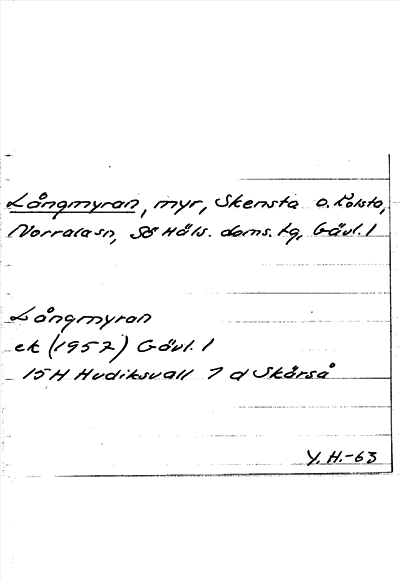 Långmyran, myr, Skensta o. Kolsta,
Norrala sn, SÖ Häls. doms. tg, Gävl. l
Långmyran
ek (1957) Gävl. l
15H Hudiksvall 7 d Skårså
Y. H.-63